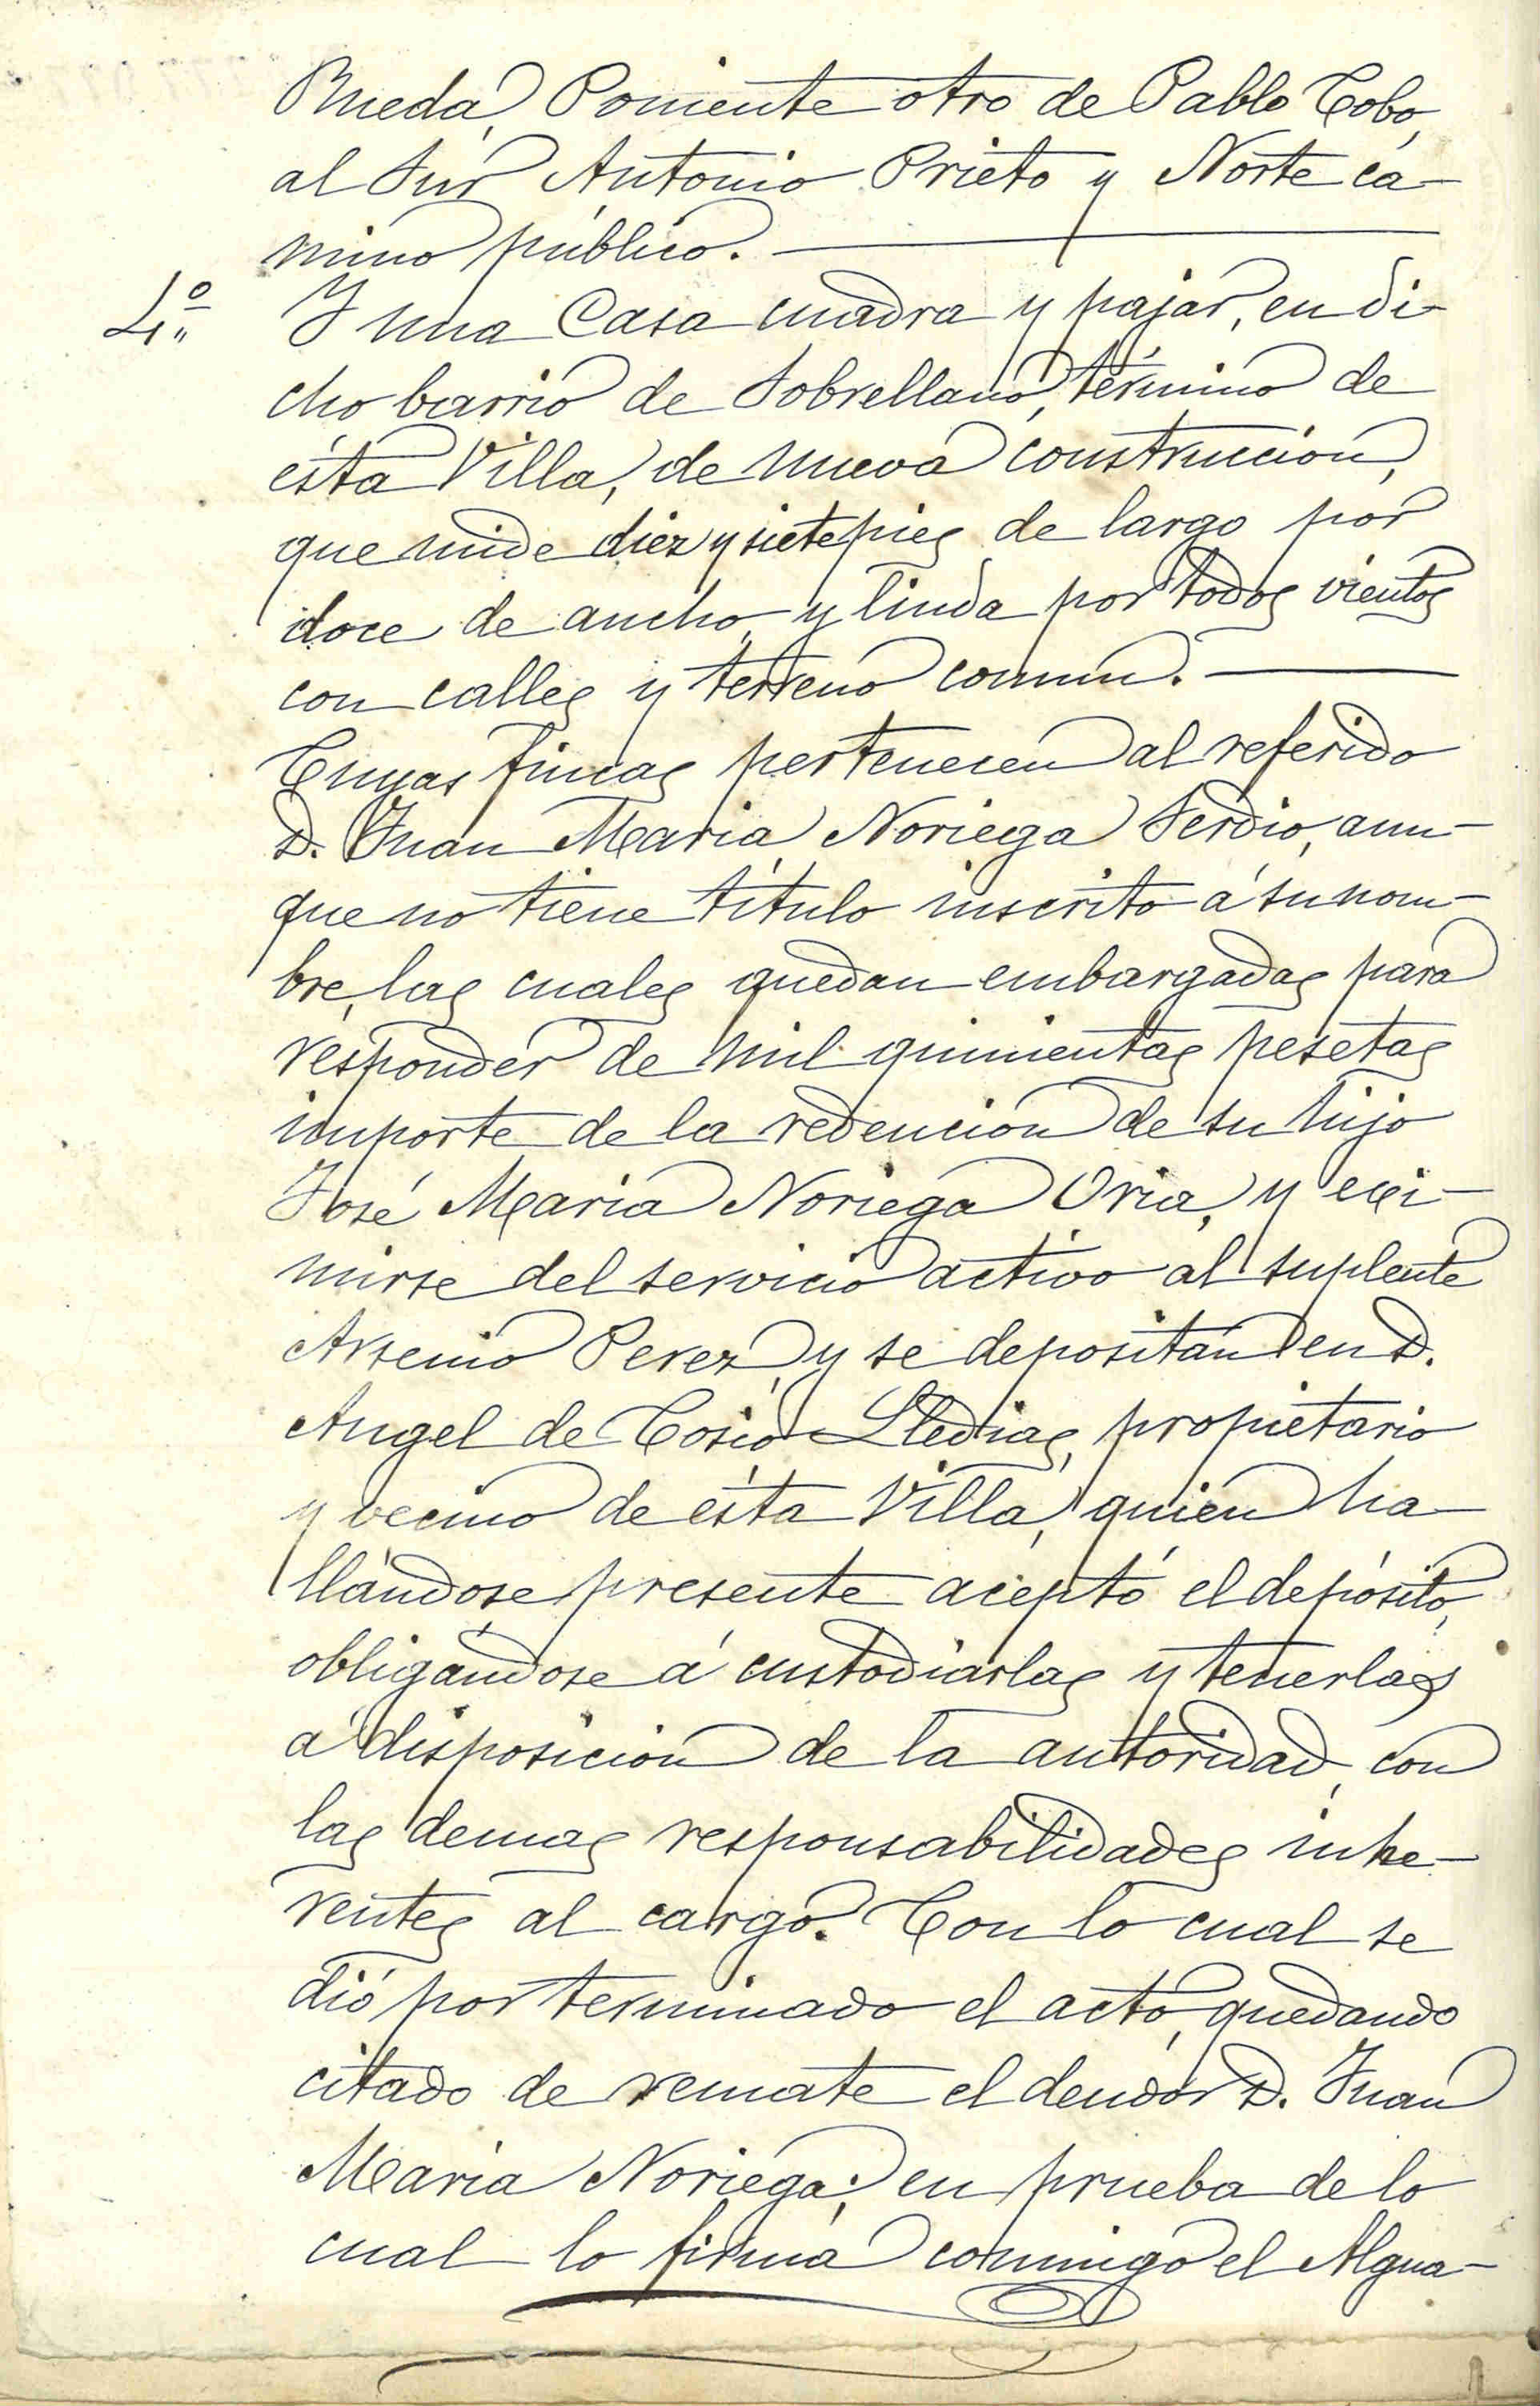 Rueda, Poniente otro de Pablo Cobo,
al Sur Antonio Prieto y Norte ca-
mino público.
4.º Y una Casa cuadra y pajar, en di-
cho barrio de Sobrellano, término de
ésta Villa, de nueva construccion,
que mide diez y siete pies de largo por
doce de ancho, y linda por todos vientos
con calles y terreno comun.
Cuyas fincas pertenecen al referido
D. Juan Maria Noriega Serdio, aun-
que no tiene título inscrito á su nom-
bre, las cuales quedan embargadas para
responder de mil quinientas pesetas
importe de la redencion de su hijo
José Maria Noriega Oria, y exi-
mirse del servicio activo al suplente
Arsenio Perez, y se depositan en D.
Angel de Cosio Lledias, propietario
y vecino de ésta Villa, quien ha-
llándose presente aceptó el depósito,
obligándose á custodiarlas y tenerlas
á disposicion de la autoridad, con
las demas responsabilidades inhe-
rentes al cargo. Con lo cual se
dió por terminado el acto, quedando
citado de remate el deudor D. Juan
Maria Noriega; en prueba de lo
cual lo firma conmigo el Algua-